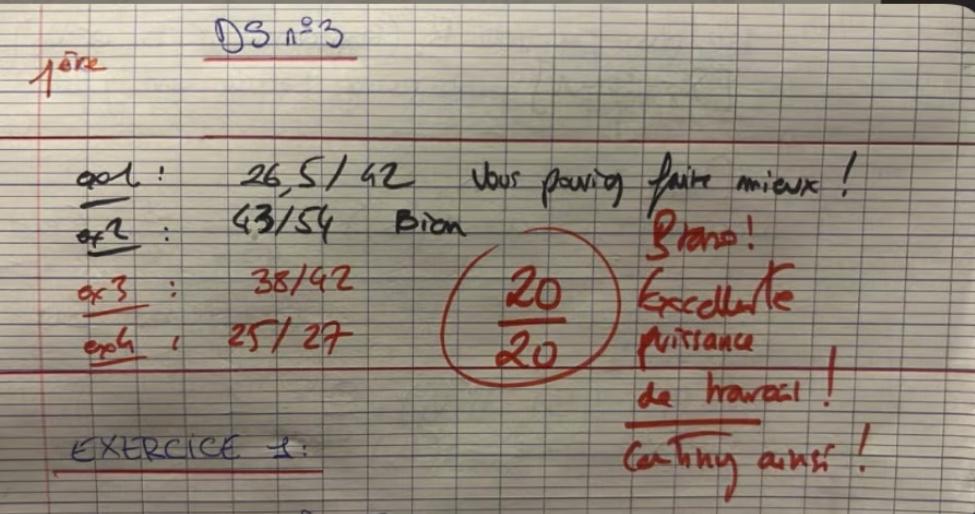 DS n°3
1ère
ex1 : 26,5/42 Vous pouviez faire mieux !
ex2 : 43/54 Bien
Bravo !
ex3 : 38/42
20
20
Excellente
puissance
ex4 : 25/27
de travail !
EXERCICE 1:
Continuez ainsi !